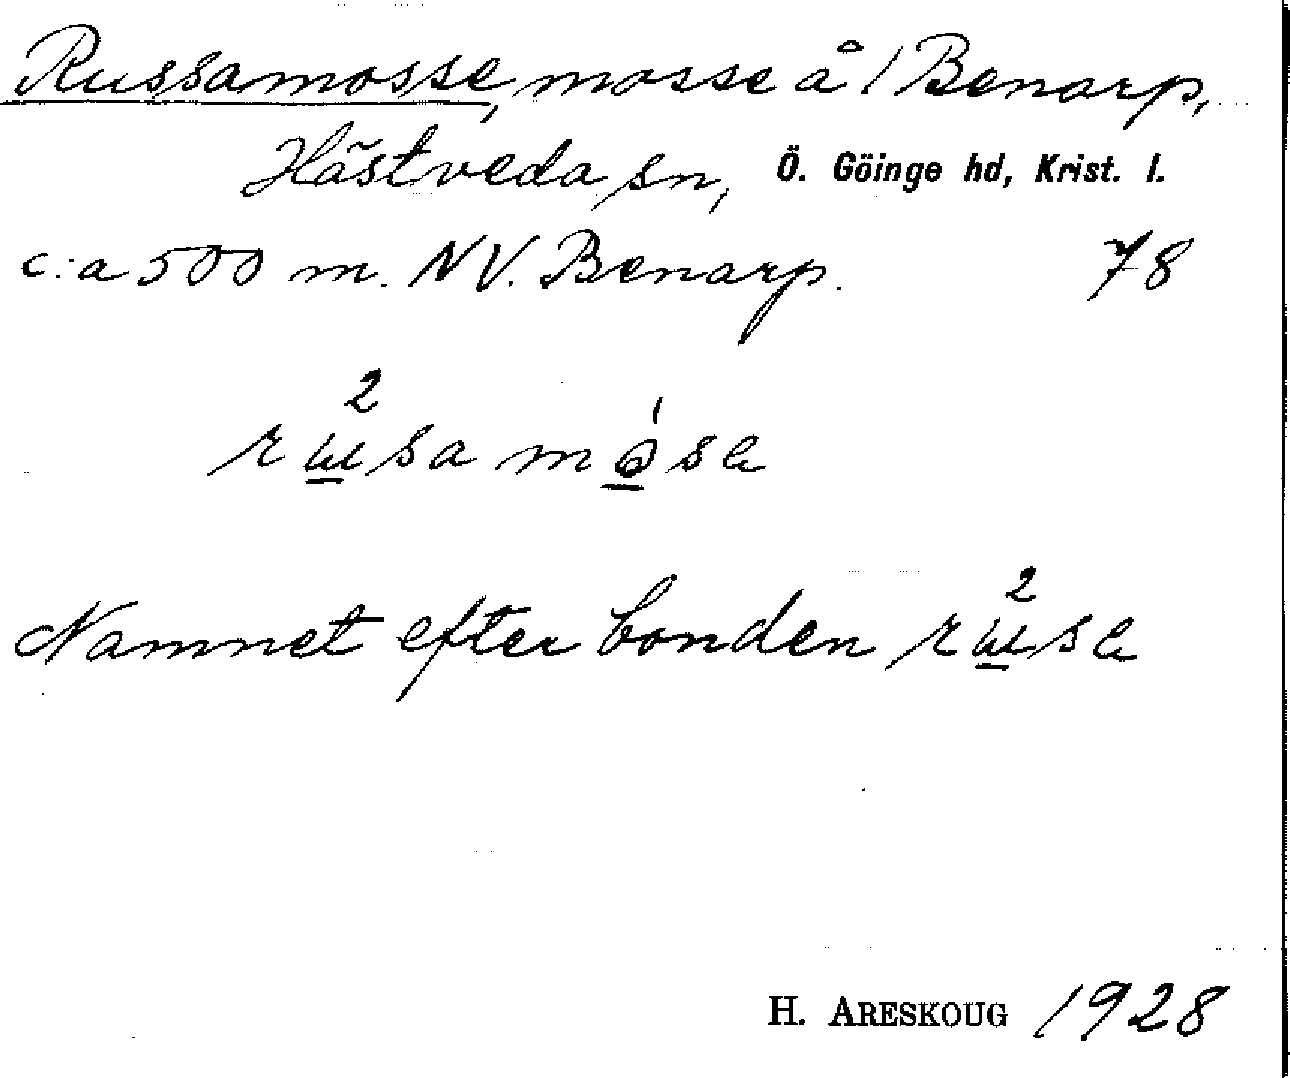 Russamosse, mosse å 1 Benarp,
Hästveda sn, Ö. Göinge hd, Krist. l.
c:a 500 m. NV. Benarp. 78
2 1
rɯsa mɵsa
Namnet efter bonden rɯ²sa
H. ARESKOUG 1928